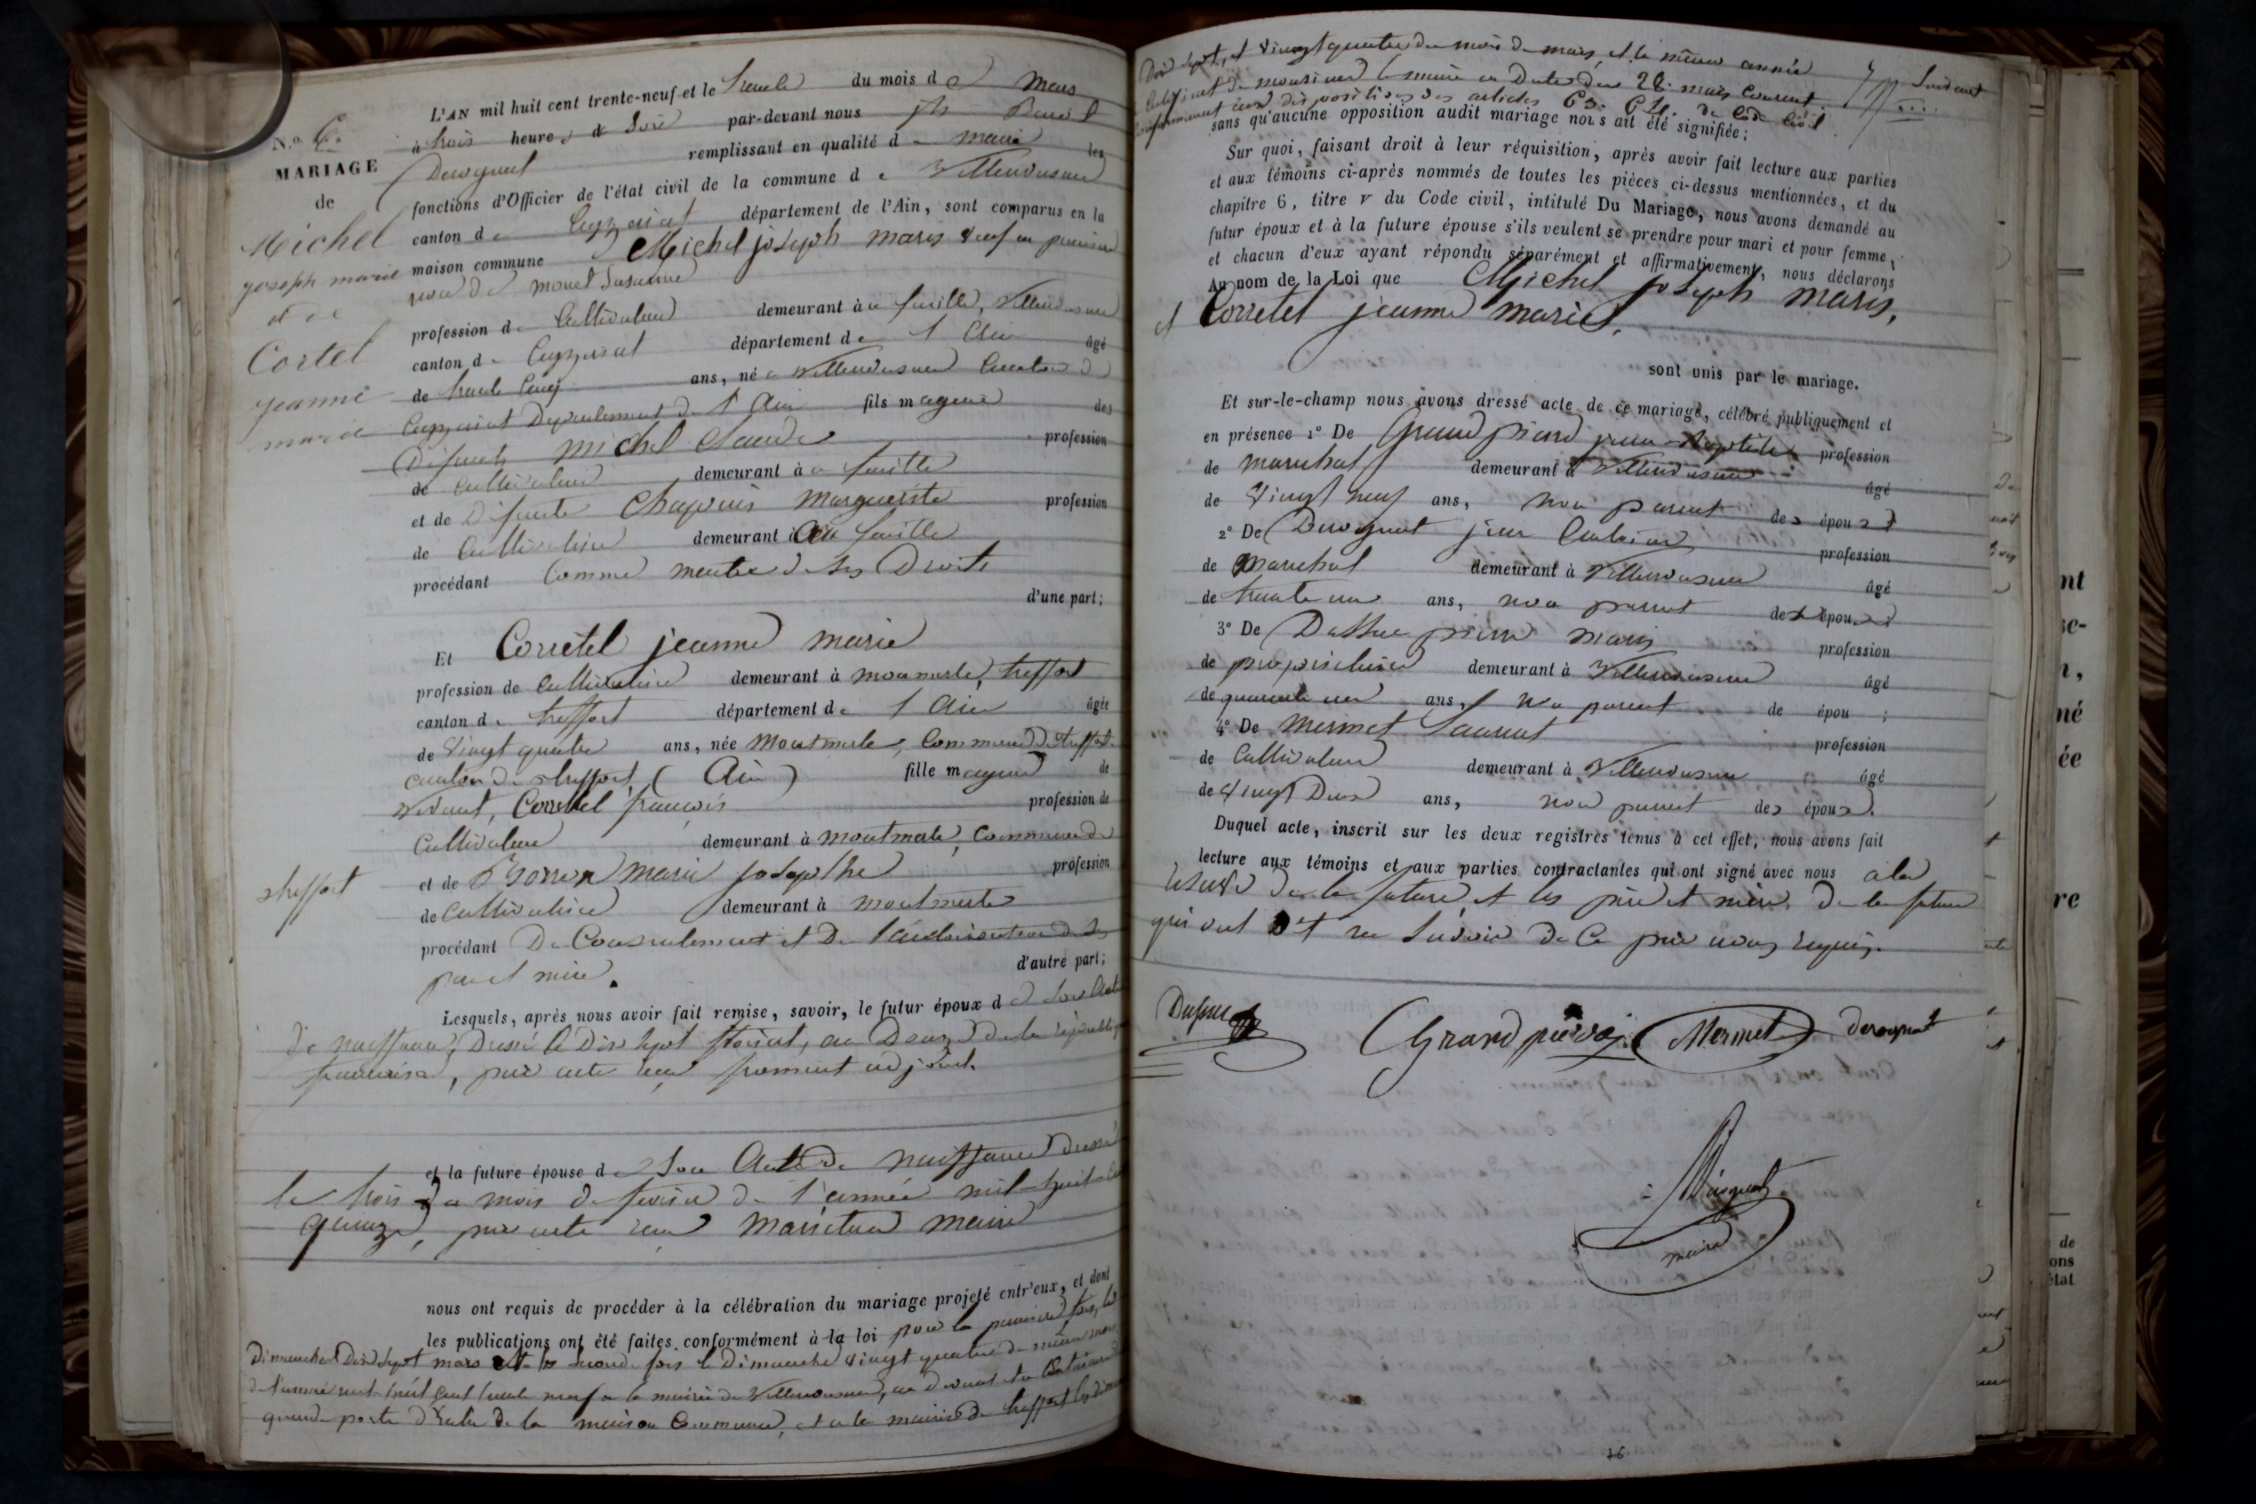 L'AN mil huit cent trente-neuf et le trente du mois d e mars
N.o 6.
à trois heures d soir par-devant nous jh Benoit
MARIAGE
Derognat remplissant en qualité de maire les
de
fonctions d'Officier de l'état civil de la commune de Villereversure
Michel
canton de Ceyzériat département de l'Ain, sont comparus en la
joseph marie
maison commune Michel joseph marie veuf en première
et de
noce de monet Susanne
Cortel
profession de Cultivateur demeurant à
jeanne
canton de Ceyzeriat département de l'Ain âgé
marie
de trente cinq ans, né a Villereversure Canton de
Ceyzeriat Departement de l'Ain fils majeur des
Défunts michel Claude profession
de cultivateur demeurant à
et de Défunte Chapuis Marguerite profession
de Cultivatrice demeurant à
procédant Comme maitre de ses Droits
d'une part;
Et Corretel jeanne marie
profession de cultivatrice demeurant à montmerle, treffort
canton de treffort département de l'Ain âgée
de vingt quatre ans, née Montmerle, Commune de treffort
canton de treffort, (Ain) fille majeure de
vivant, Corretel françois profession de
Cultivateur demeurant à montmerle, Commune de
treffort
et de marie josephe profession
de Cultivatrice demeurant à montmerle
procédant Du Consentement et De l'autorisation de ses
père et mère. d'autre part;
Lesquels, après nous avoir fait remise, savoir, le futur époux d e son Acte
de naissance, Dressé le Dix sept floréal, an Douze de la république
française, par acte reçu froment adjoint.
et la future épouse de Son Acte de naissance dressé
le trois du mois de fevrier de l'année mil huit cent
quinze, par acte reçu maire
nous ont requis de procéder à la célébration du mariage projeté entr'eux, et dont
les publications ont été faites conformément à la loi pour la première fois, le
Dimanche Dix sept mars et la seconde fois le Dimanche vingt quatre du même mois
de l'année mil huit cent trente neuf a la mairie de Villereversure, au devant et a
grande porte d'entrée de la maison Commune, et a la mairie de treffort les dimanches
Dix sept, et vingt quatre du mois de mars, et la même année
Certificat de monsieur le maire en Date du 28 mars courant
conformement aux dispositions des articles 63. 64. du Code Civil
sans qu'aucune opposition audit mariage nous ait été signifiée;
Sur quoi, faisant droit à leur réquisition, après avoir fait lecture aux parties
et aux témoins ci-après nommés de toutes les pièces ci-dessus mentionnées, et du
chapitre 6, titre V du Code civil, intitulé Du Mariage, nous avons demandé au
futur époux et à la future épouse s'ils veulent se prendre pour mari et pour femme,
et chacun d'eux ayant répondu séparément et affirmativement, nous déclarons
Au nom de la Loi que Michel joseph marie,
et Corretel jeanne marie,
sont unis par le mariage.
Et sur-le-champ nous avons dressé acte de ce mariage, célébré publiquement et
en présence 1º De Grand pierre jean Baptiste profession
de marechal demeurant à Villereversure âgé
de vingt neuf ans, non parent des époux
2º De Derognat jean profession
de marechal demeurant à Villereversure âgé
de trente un ans, non parent des époux
3º De pierre marie profession
de propriétaire demeurant à Villereversure âgé
de quarante un ans, non parent de épou ;
4º De Mermet Laurent profession
de Cultivateur demeurant à Villereversure âgé
de vingt Deux ans, non parent des époux.
Duquel acte, inscrit sur les deux registres tenus à cet effet, nous avons fait
lecture aux témoins et aux parties contractantes qui ont signé avec nous a la
reserve de la future et les père et mère de la future
qui ont dit ne savoir de Ce par nous requis.
Grand pierre Mermet derognat
maire
16